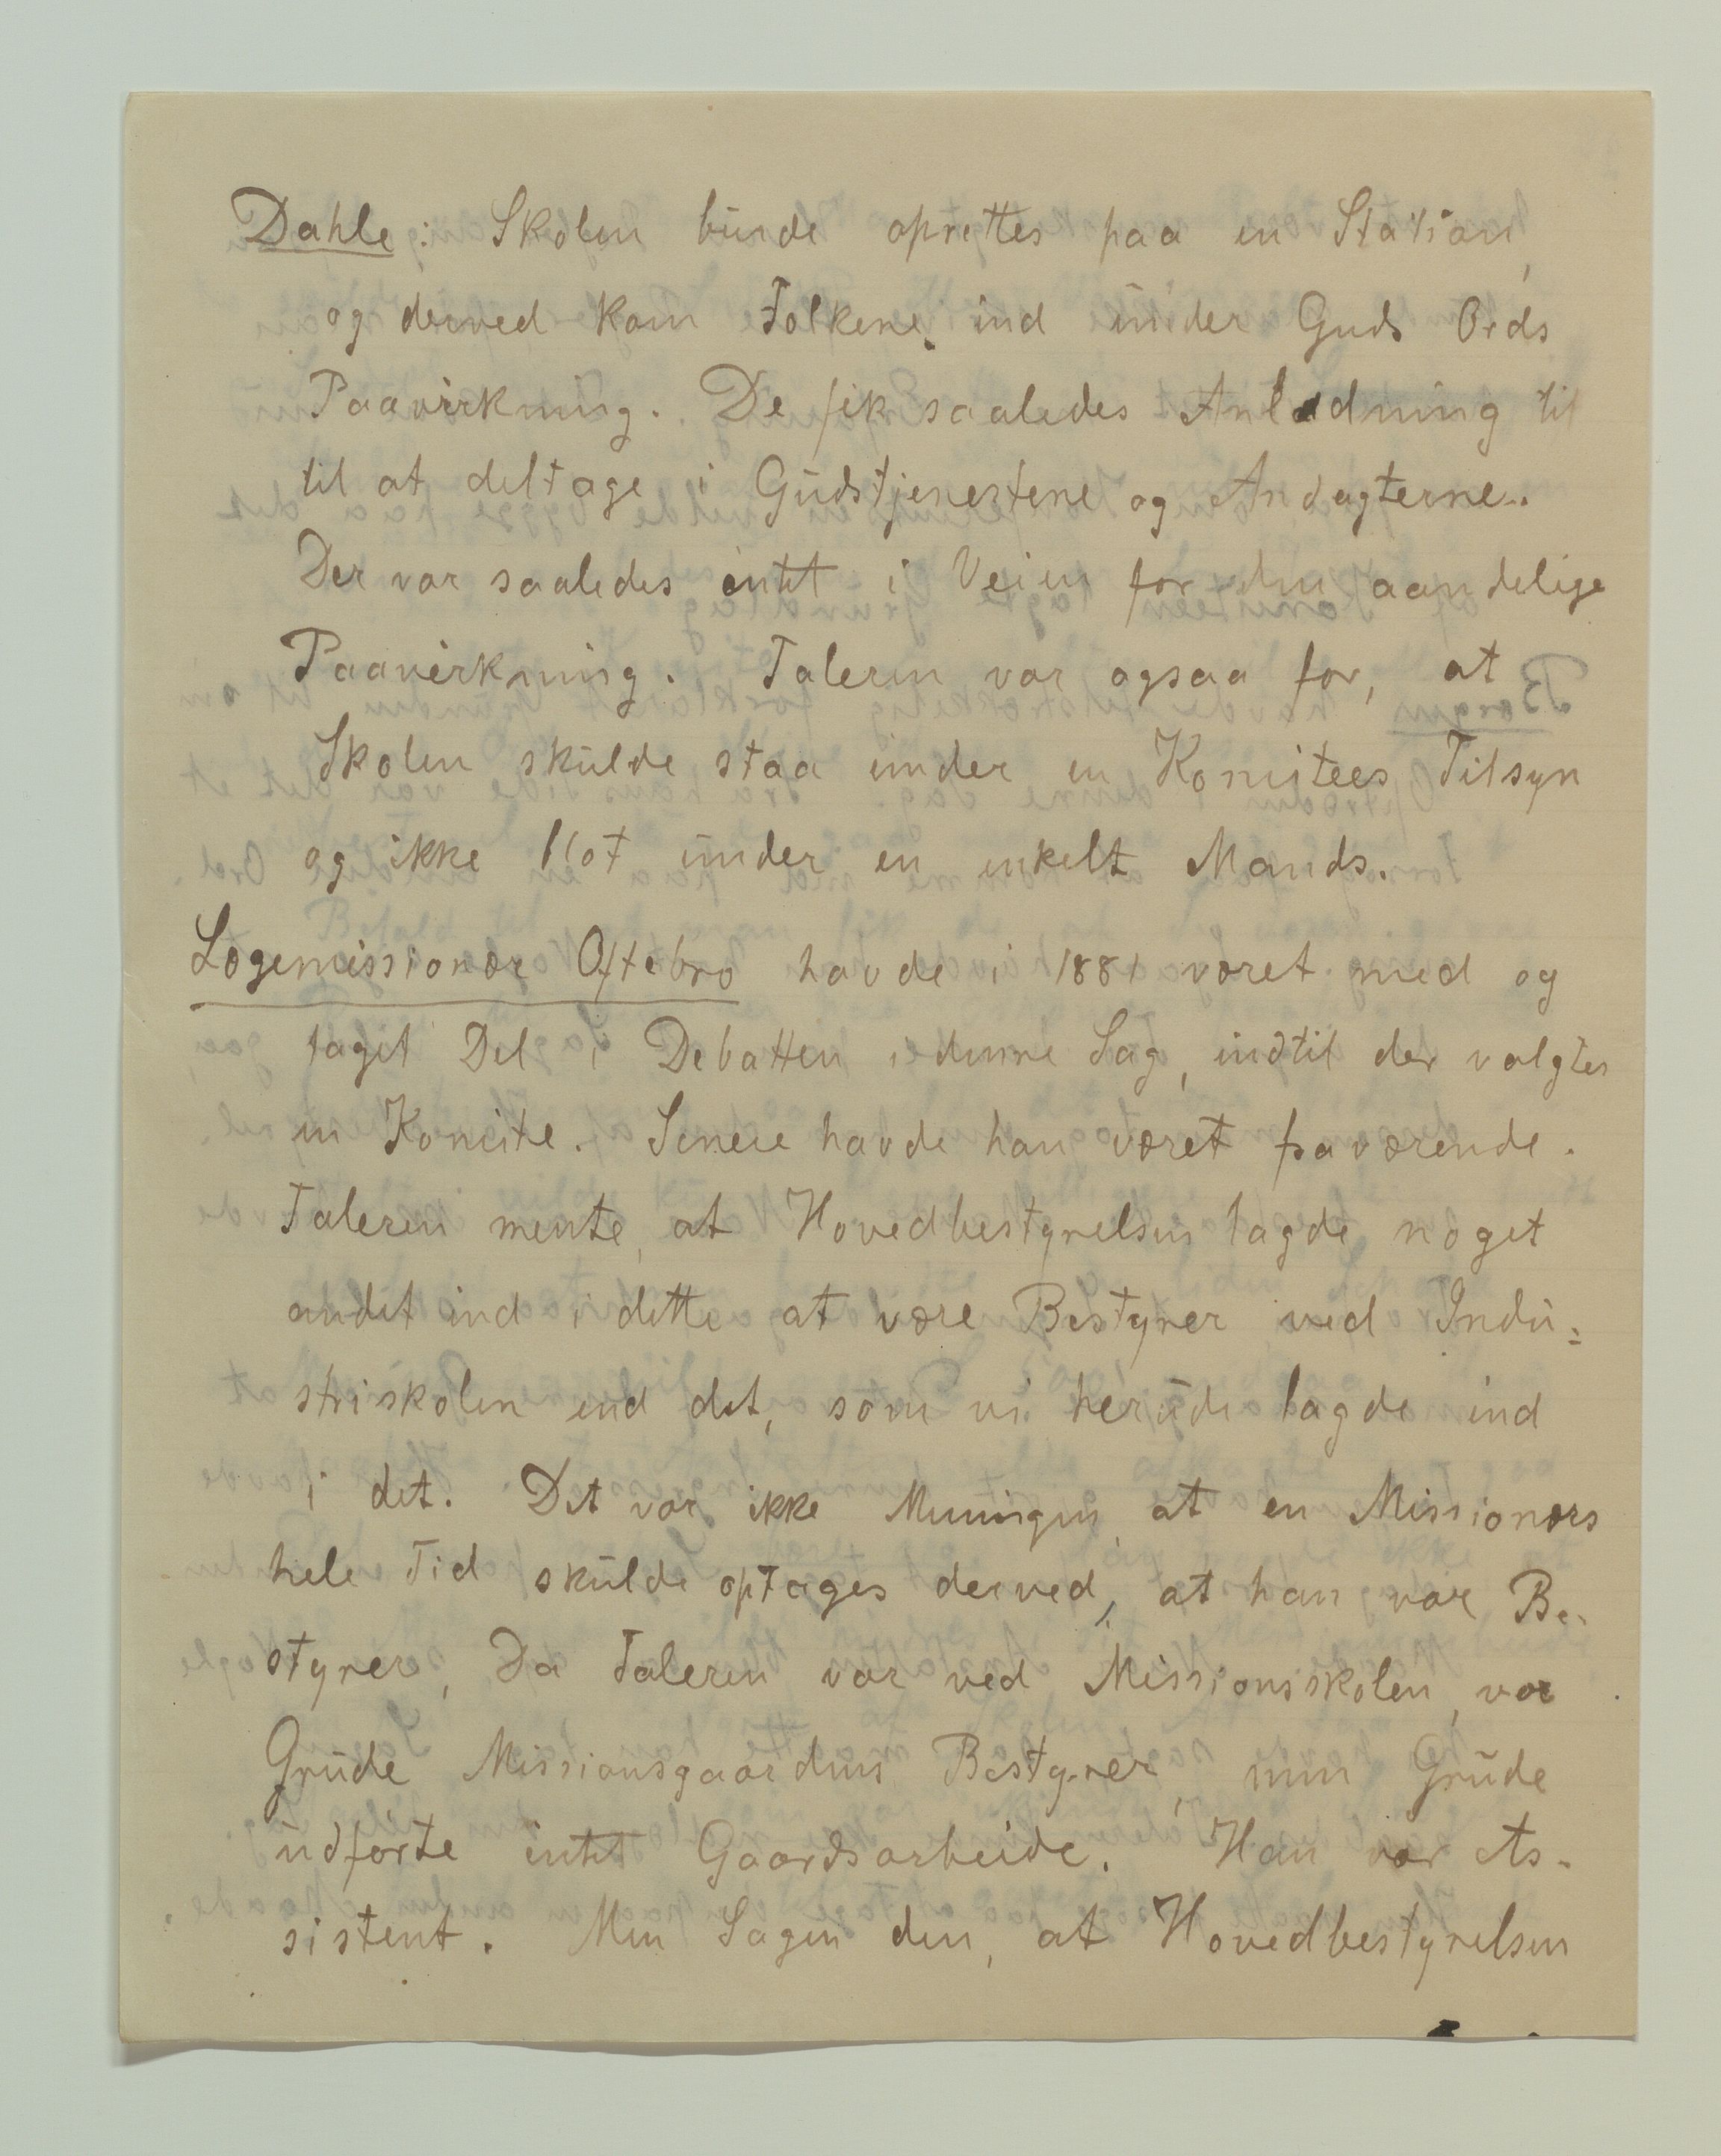 Dahle: Skolen burde oprettes paa en Station,
og derved kom Folkene ind under Guds Ords
Paavirkning. De fik saaledes Anledning til
til at deltage i Gudstjenestene og Andagterne.
Der var saaledes intet i Veien for den aandelige
Paavirkning. Taleren var ogsaa for, at
Skolen skulde staa under en Komitees Tilsyn
og ikke blot under en enkelt Mands.
Lægemissionær Oftebro havde i 1881 været med og
taget Del i Debatten i denne Sag, indtil der valgtes
en Komite. Senere havde han været fraværende.
Taleren mente, at Hovedbestyrelsen lagde noget
andet ind i dette at være Bestyrer ved Indu=
striskolen end det, som vi herude lagde ind
i det. Det var ikke Meningen, at en Missionærs
hele Tid skulde optages derved, at han var Be-
styrer, Da Taleren var ved Missionsskolen, var
Grude Missionsgaardens Bestyrer, men Grude
udførte intet Gaardsarbeide. Han var As-
sistent. Men Sagen den, at Hovedbestyrelsen